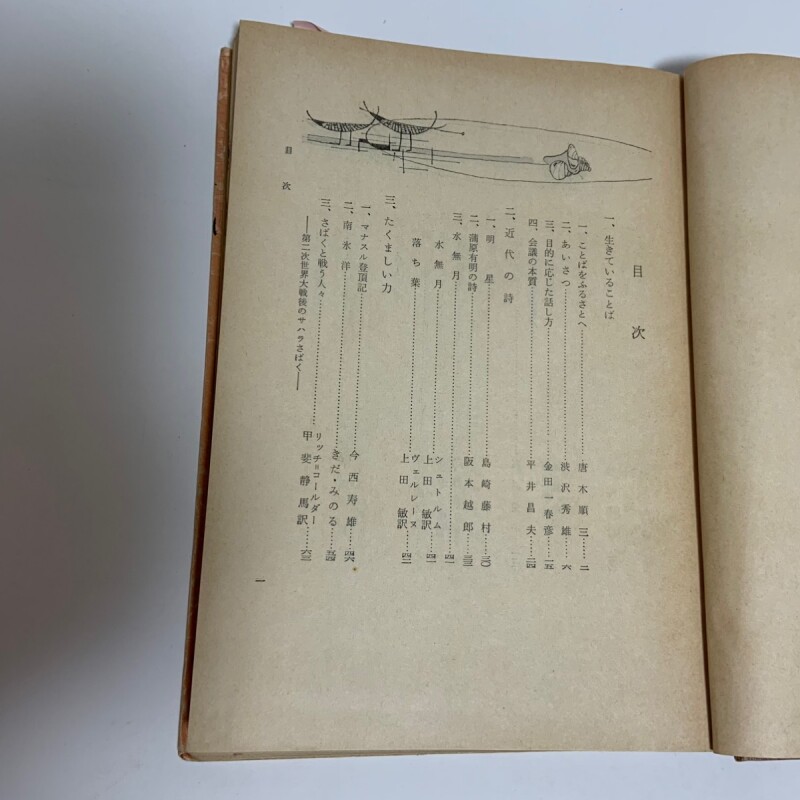 目次
一、生きていることば
一、ことばをふるさとへ……唐木順三……二
二、あいさつ……渋沢秀雄……六
三、目的に応じた話し方……金田一春彦……一五
四、会議の本質……平井昌夫……二四
二、近代の詩
一、明星……島崎藤村……三〇
二、蒲原有明の詩……阪本越郎……三三
三、水無月……四一
水無月……シュトルム 上田敏訳……四一
落ち葉……ヴェルレーヌ 上田敏訳……四二
三、たくましい力
一、マナスル登頂記……今西寿雄……四六
二、南氷洋……きだ・みのる……五四
三、さばくと戦う人々……リッチ=コールダー 甲斐静馬訳……六三
――第二次世界大戦後のサハラさばく――
目次
一